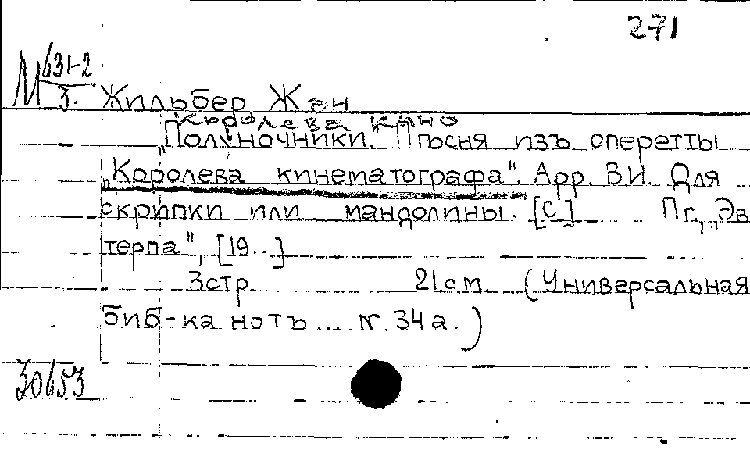 271
М 631-2
3. Жильбер Жан
Королева кино
„Полуночники." Пѣсня изъ оперетты
„Королева кинематографа". Арр. В.И. Для
скрипки или мандолины. [С.] Пг., „Эв
терпа", [19..]
3 стр. 21 см. (Универсальная
биб-ка нотъ.... №. 34а.)
30653